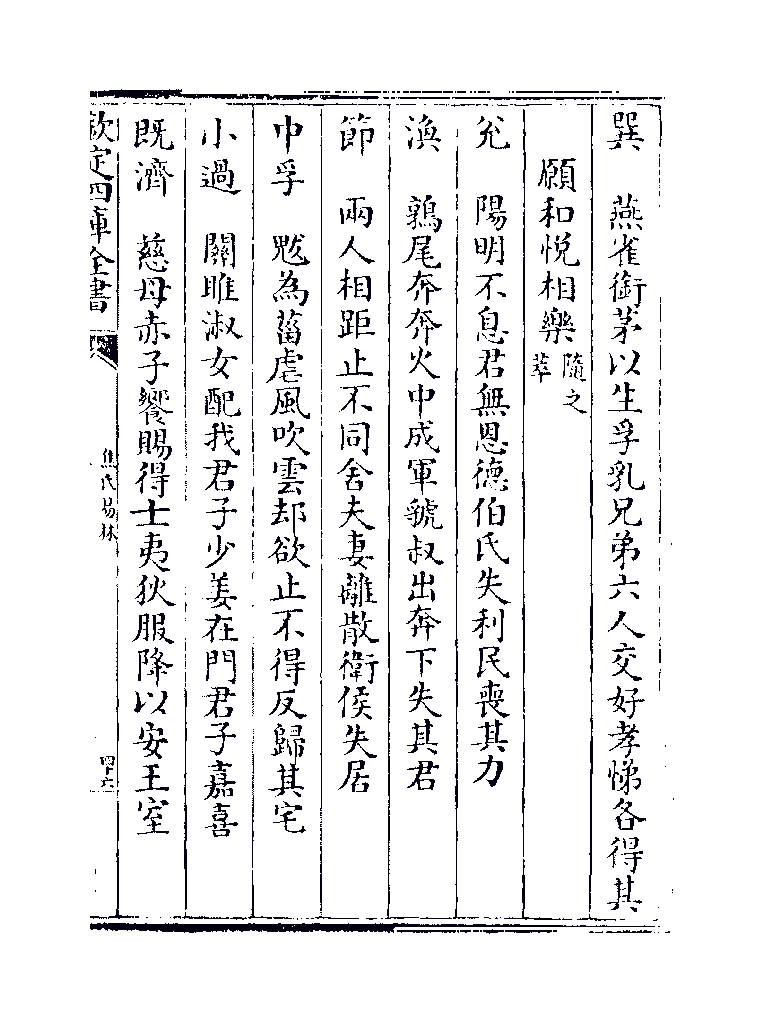 巽　燕雀銜茅以生孚乳兄弟六人交好孝悌各得其
願和悅相樂隨之萃
兊　陽明不息君無恩德伯氏失利民喪其力
渙　鶉尾奔奔火中成軍虢叔出奔下失其君
節　兩人相距止不同舍夫妻離散衛侯失居
中孚　魃為菑虐風吹雲却欲止不得反歸其宅
小過　關雎淑女配我君子少姜在門君子嘉喜
既濟　慈母赤子饗賜得士夷狄服降以安王室
欽定四庫全書
焦氏易林
四十六